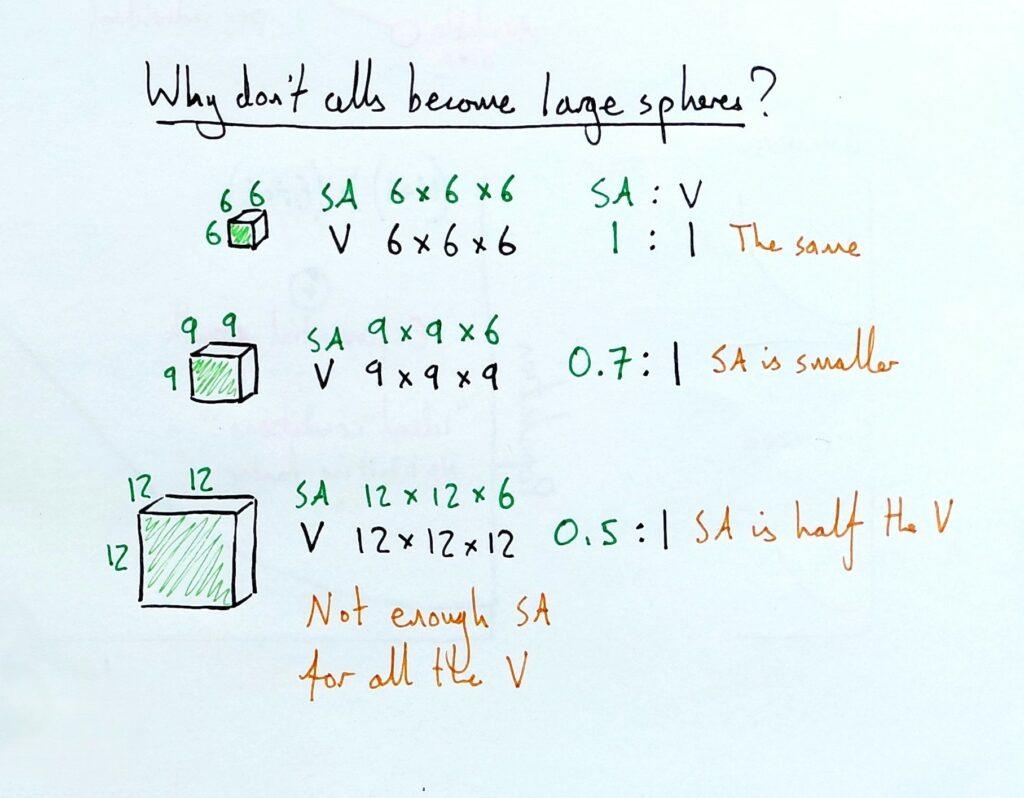 Why don't cells become large spheres?
6 6 SA 6 x 6 x 6 SA : V
6 V 6 x 6 x 6 1 : 1 The same
9 9 SA 9 x 9 x 6
9 V 9 x 9 x 9 0.7 : 1 SA is smaller
12 12 SA 12 x 12 x 6
12 V 12 x 12 x 12 0.5 : 1 SA is half the V
Not enough SA
for all the V